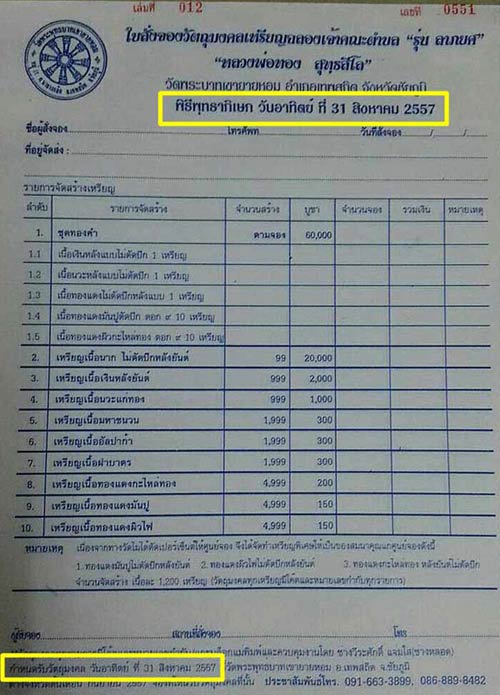 เล่มที่ 012
เลขที่ 0551
ใบสั่งจองวัตถุมงคลเหรียญฉลองเจ้าคณะตำบล “รุ่น ลาภยศ”
“หลวงพ่อทอง สุทธสีโล”
วัดพระบาทเขายายหอม อำเภอเทพสถิต จังหวัดชัยภูมิ
พิธีพุทธาภิเษก วันอาทิตย์ ที่ 31 สิงหาคม 2557
ชื่อผู้สั่งจอง โทรศัพท์ วันที่สั่งจอง / /
ที่อยู่จัดส่ง :
รายการจัดสร้างเหรียญ
ลำดับ รายการจัดสร้าง จำนวนสร้าง บูชา จำนวนจอง รวมเงิน หมายเหตุ
1. ชุดทองคำ ตามจอง 60,000
1.1 เนื้อเงินหลังแบบไม่ตัดปีก 1 เหรียญ
1.2 เนื้อนวะหลังแบบไม่ตัดปีก 1 เหรียญ
1.3 เนื้อทองแดงไม่ตัดปีกหลังแบบ 1 เหรียญ
1.4 เนื้อทองแดงมันปูตัดปีก ตอก ๙ 10 เหรียญ
1.5 เนื้อทองแดงผิวกะไหล่ทอง ตอก ๙ 10 เหรียญ
2. เหรียญเนื้อนาก ไม่ตัดปีกหลังยันต์ 99 20,000
3. เหรียญเนื้อเงินหลังยันต์ 999 2,000
4. เหรียญเนื้อนวะแก่ทอง 999 1,000
5. เหรียญเนื้อมหาชนวน 1,999 300
6. เหรียญเนื้ออัลปาก้า 1,999 300
7. เหรียญเนื้อฝาบาตร 1,999 300
8. เหรียญเนื้อทองแดงกะไหล่ทอง 4,999 200
9. เหรียญเนื้อทองแดงมันปู 4,999 150
10. เหรียญเนื้อทองแดงผิวไฟ 4,999 150
หมายเหตุ เนื่องจากทางวัดไม่ได้ตัดเปอร์เซ็นต์ให้ศูนย์จอง จึงได้จัดทำเหรียญพิเศษให้เป็นของสมนาคุณแก่ศูนย์จองดังนี้
1. ทองแดงมันปูไม่ตัดปีกหลังยันต์ 2. ทองแดงผิวไฟไม่ตัดปีกหลังยันต์ 3. ทองแดงกะไหล่ทอง หลังยันต์ไม่ตัดปีก
จำนวนจัดสร้าง เนื้อละ 1,200 เหรียญ (วัตถุมงคลทุกเหรียญมีโค้ดและหมายเลขกำกับทุกรายการ)
ผู้รับจอง สถานที่สั่งจอง โทร
แกะแม่พิมพ์และควบคุมงานโดย ช่างวีระศักดิ์ แจ่มใส(ช่างหลอด)
กำหนดรับวัตถุมงคล วันอาทิตย์ ที่ 31 สิงหาคม 2557 วัดพระพุทธบาทเขายายหอม อ.เทพสถิต จ.ชัยภูมิ
ประชาสัมพันธ์โทร. 091-663-3899, 086-889-8482